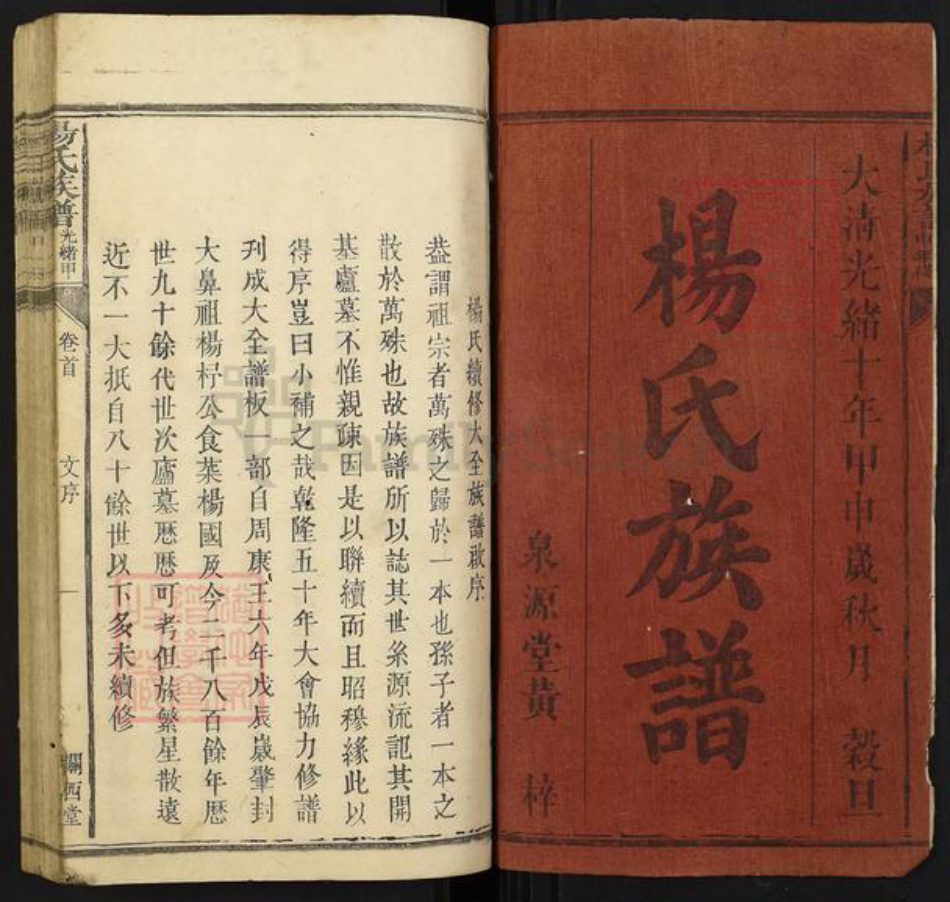 大清光緒十年甲申歲秋月 穀旦
楊氏族譜
泉源堂黃 梓
楊氏續修大全族譜啟序
葢謂祖宗者萬殊之歸於一本也孫子者一本之
散於萬殊也故族譜所以誌其世系源流記其開
基廬墓不惟親疎因是以聯續而且昭穆緣此以
得序豈曰小補之哉乾隆五十年大會協力修譜
刋成大全譜板一部自周康王六年戊辰歲肇封
大鼻祖楊杼公食菜楊國及今二千八百餘年歷
世九十餘代世次廬墓歷歷可考但族繁星散遠
近不一大抵自八十餘世以下多未續修
楊氏族譜 光緒甲
卷首
文序
一
關西堂
FamilySearch